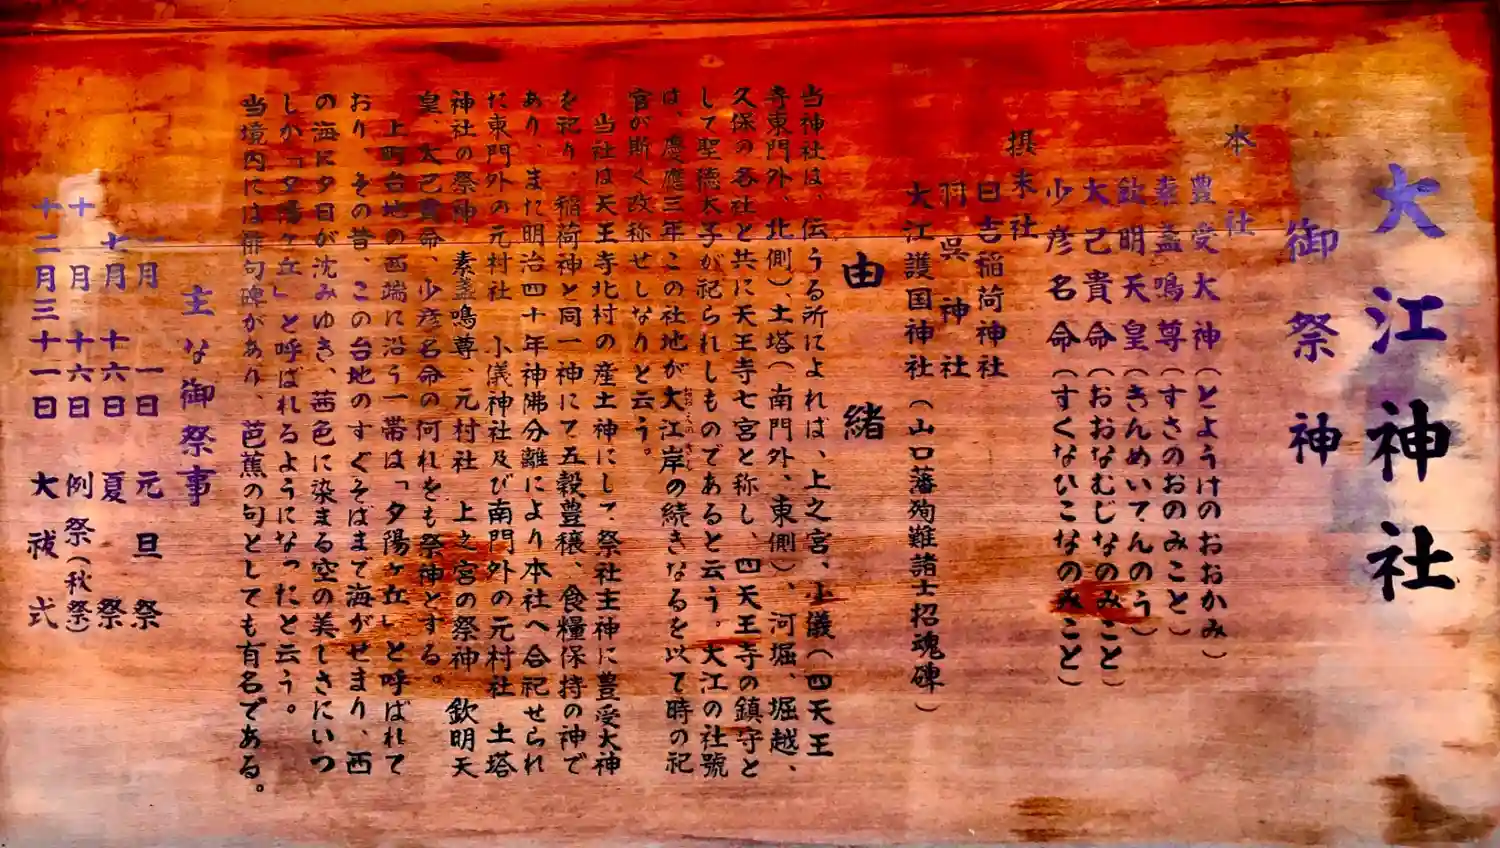 大江神社
御祭神
本社
豊受大神(とようけのおおかみ)
素盞鳴尊(すさのおのみこと)
欽明天皇(きんめいてんのう)
大己貴命(おおなむじなのみこと)
少彦名命(すくなひこなのみこと)
摂末社
日吉稲荷神社
羽呉神社
大江護国神社(山口藩殉難諸士招魂碑)
由緒
当神社は、伝うる所によれば、上之宮、小儀(四天王
寺東門外、北側)、土塔(南門外、東側)、河堀、堀越、
久保の各社と共に天王寺七宮と称し、四天王寺の鎮守と
して聖徳太子が祀られしものであると云う。大江の社號
は、慶應三年この社地が大江岸の続きなるを以て時の祀
官が斯く改称せしなりと云う。
当社は天王寺北村の産土神にして、祭社主神に豊受大神
を祀り、稲荷神と同一神にて五穀豊穣、食糧保持の神で
あり、また明治四十年神佛分離により本社へ合祀せられ
た東門外の元村社 小儀神社及び南門外の元村社 土塔
神社の祭神 素盞鳴尊、元村社 上之宮の祭神 欽明天
皇、大己貴命、少彦名命の何れをも祭神とする。
上町台地の西端に沿う一帯は「夕陽ヶ丘」と呼ばれて
おり、その昔、この台地のすぐそばまで海がせまり、西
の海に夕日が沈みゆき、茜色に染まる空の美しさにいつ
しか「夕陽ヶ丘」と呼ばれるようになったと云う。
当境内には俳句碑があり、芭蕉の句としても有名である。
主な御祭事
一月 一日 元旦祭
七月 十六日 夏祭
十月 十六日 例祭(秋祭)
十二月三十一日 大祓式